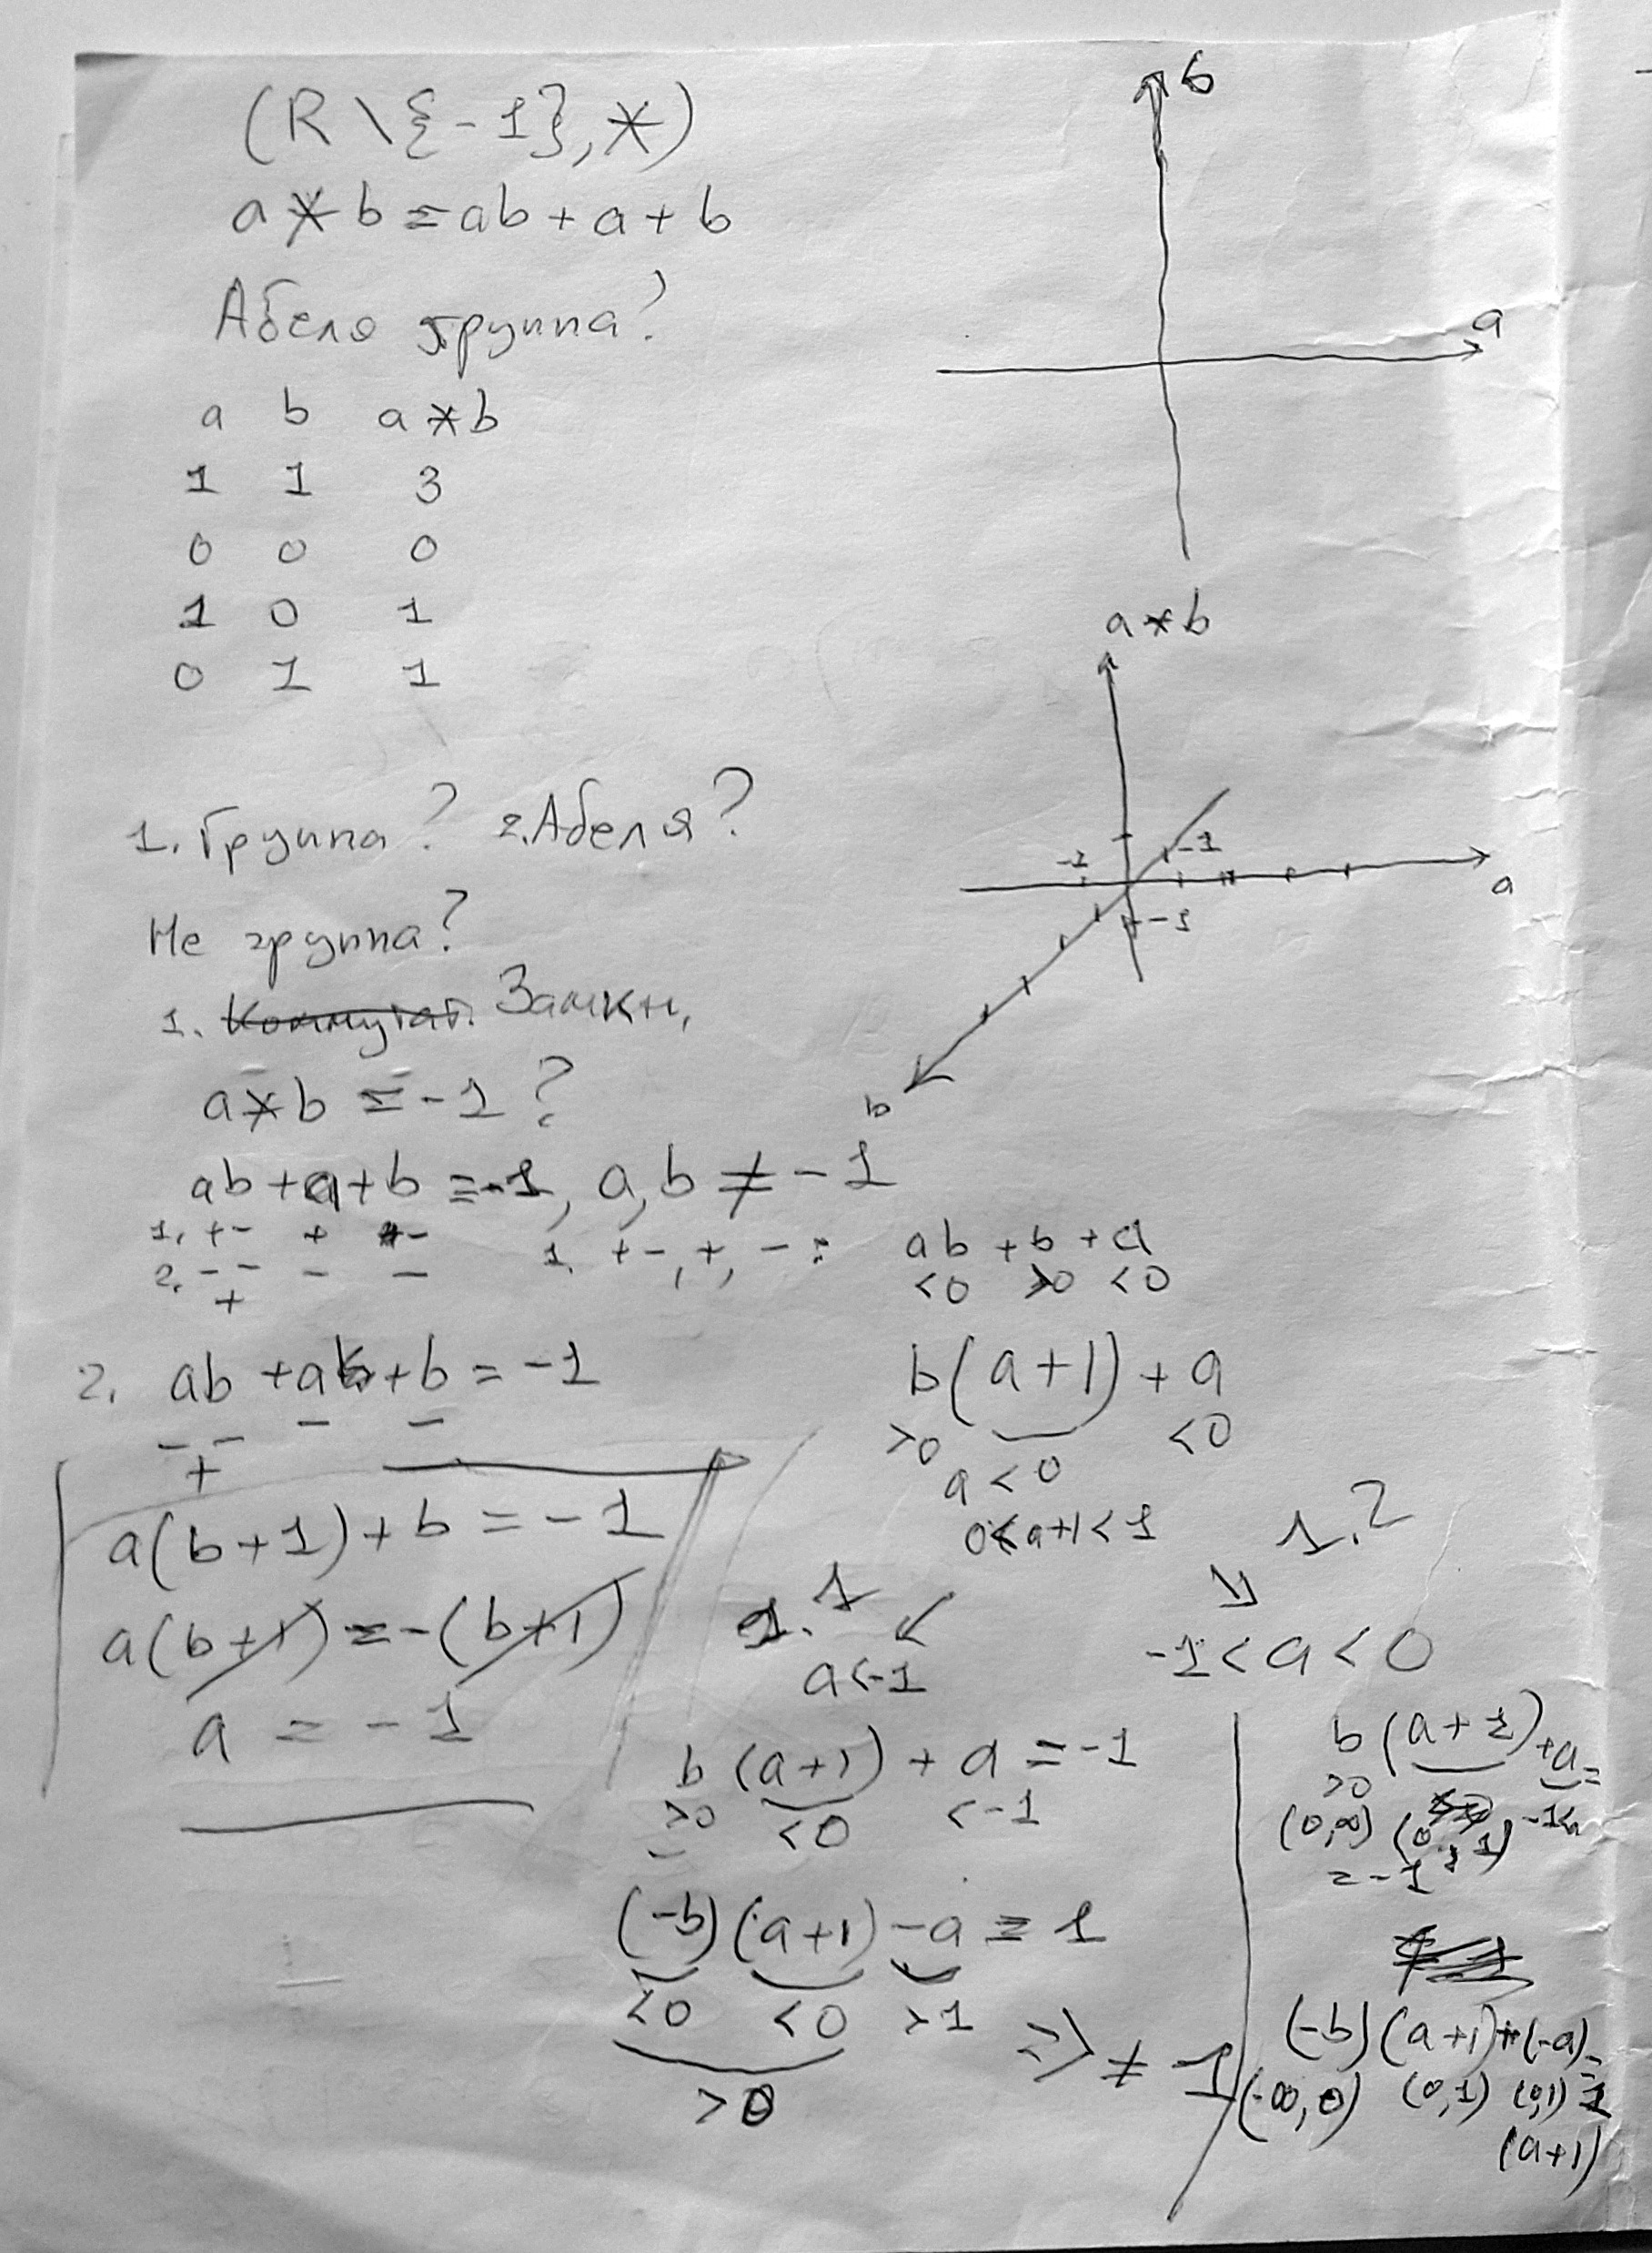 (R \ {-1}, *)
a * b = ab + a + b
Абеля группа?
a b a * b
1 1 3
0 0 0
1 0 1
0 1 1
b
a
a * b
-1 -1
-1
a
b
1. Группа? 2. Абеля?
Не группа?
1. Коммутат. Замкн.
a * b = -1 ?
ab + a + b = -1, a, b ≠ -1
1. +- + -
2. -- - -
+
1. +-, +, - :
ab + b + a
<0 >0 <0
2. ab + a + b = -1
-- - -
+
a(b+1) + b = -1
a(b+1) = -(b+1)
a = -1
b(a+1) + a
>0 <0
a < 0
0 < a+1 < 1
1.1
a < -1
b (a+1) + a = -1
>0 <0 < -1
(-b)(a+1) - a = 1
<0 <0 >1
>0
=> ≠ -1
1.2
-1 < a < 0
b (a+1) + a =
>0
(0,∞) (0,1) -1<a
= -1
(-b)(a+1)+(-a) =
(-∞,0) (0,1) (0,1) 1
(a+1)